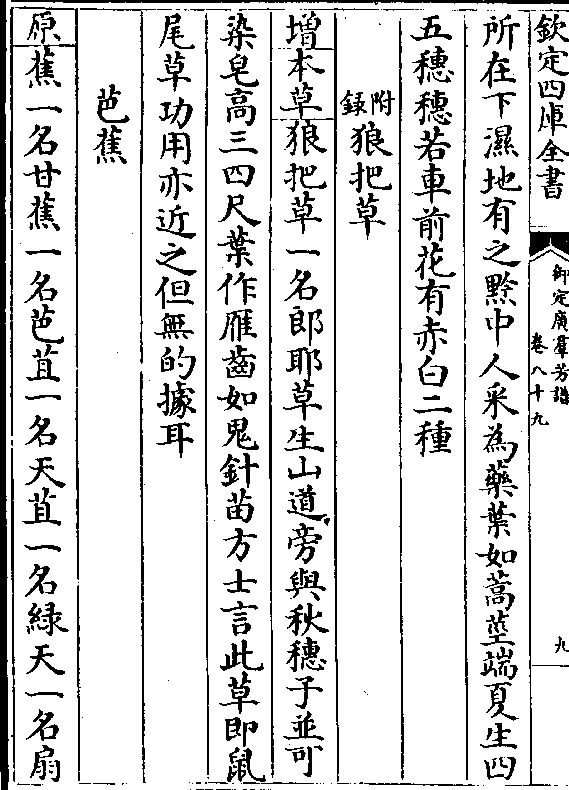 欽定四庫全書
御定廣羣芳譜
卷八十九
九
所在下濕地有之黔中人采為藥葉如蒿莖端夏生四
五穗穗若車前花有赤白二種
附錄狼把草
增本草狼把草一名郎耶草生山道旁與秋穗子並可
染皂高三四尺葉作雁齒如鬼針苗方士言此草即鼠
尾草功用亦近之但無的據耳
芭蕉
原蕉一名甘蕉一名芭苴一名天苴一名緑天一名扇